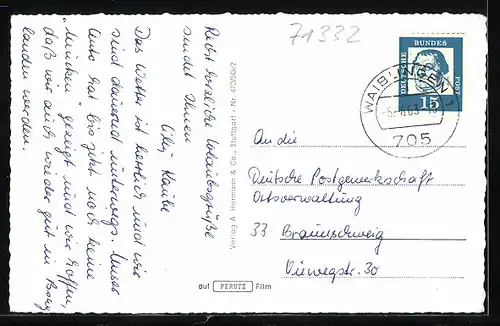 71332
DEUTSCHE
BUNDES
POST
15
WAIBLINGEN 1
705
Recht herzliche Urlaubsgrüße
sendet Ihnen
Das Wetter ist herrlich und wir
sind dauernd unterwegs. Unser
Auto hat bis jetzt noch keine
"Mucken" gezeigt und wir hoffen,
daß wir auch wieder gut in
landen werden.
Verlag A. & Co., Stuttgart
An die
Deutsche Postgewerkschaft
Ortsverwaltung
33 Braunschweig
Viewegstr. 30
auf PERUTZ Film